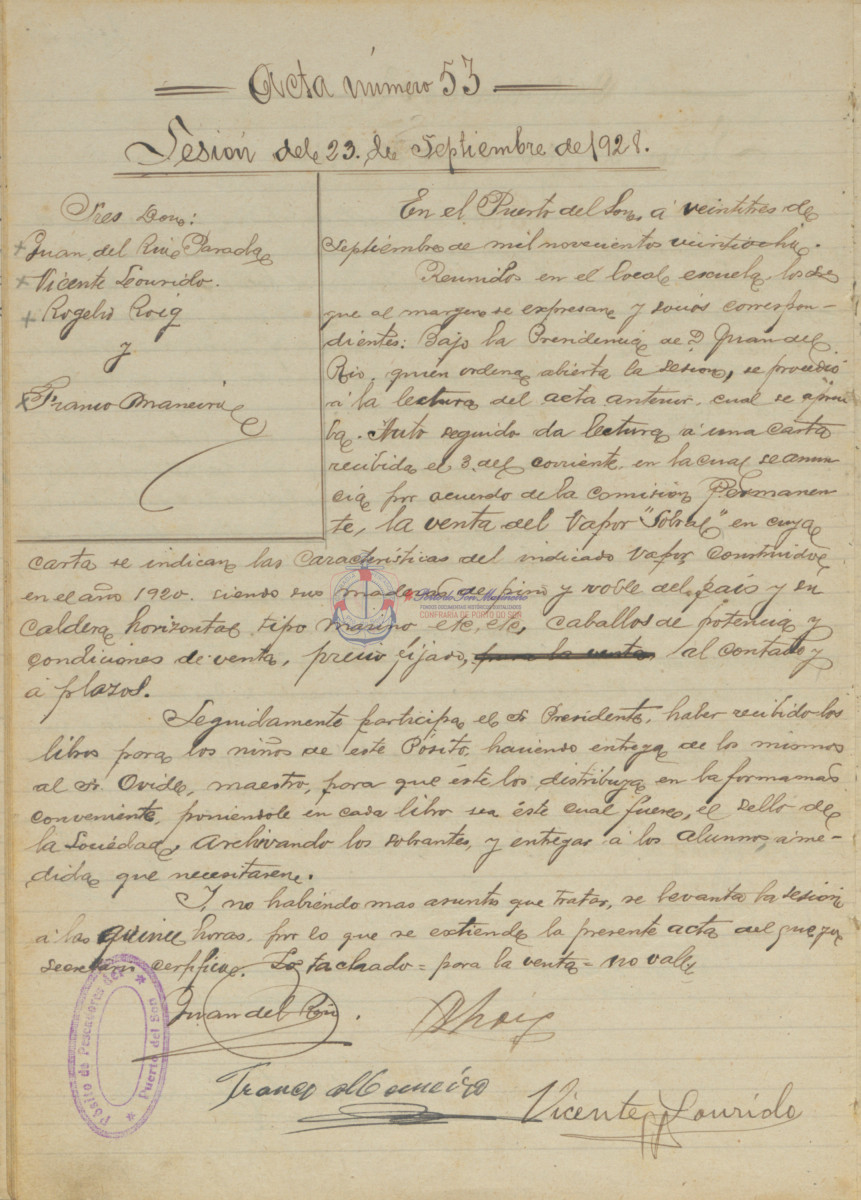 Acta número 53.
Sesión del 23 de Septiembre de 1928.
Sres Don:
Juan del Rio Parada
Vicente Lourido.
Rogelio Roig
y
Franco Maneiro
En el Puerto del Son, á veintitres de
Septiembre de mil novecientos veintiocho.
Reunidos en el local escuela, los
que al margen se expresan y socios correspon-
dientes: Bajo la Presidencia de D. Juan del
Rio, quien ordena abierta la sesion, se procedió
á la lectura del acta anterior, cual se aprue
ba. Auto seguido da lectura á una carta
recibida el 3 del corriente en la cual se anun-
cia por acuerdo de la comisión Permanen-
te, la venta del Vapor "Sobral" en cuya
carta se indican las caracteristicas del indicado vapor, construido
en el año 1920. siendo sus maderas de pino y roble del país y su
caldera horizontal tipo marino etc, etc, caballos de potencia y
condiciones de venta, precio fijado, para la venta al contado y
á plazos.
Seguidamente participa el Sr Presidente, haber recibido los
libros para los niños de este Pósito, haciendo entrega de los mismos
al Sr. Ovide, maestro, para que éste los distribuya en la forma mas
conveniente, poniendole en cada libro sea éste cual fuere, el sello de
la Sociedad, Archivando los sobrantes, y entregar á los alumnos á me-
dida que necesitaren.
Y no habiendo mas asuntos que tratar, se levanta la sesion
á las quince horas, por lo que se extiende la presente acta del que yo
secretario certifico. Lo tachado = para la venta = no vale
Juan del Rio.
RRoig
Franco Maneiro
Vicente Lourido
Pósito de Pescadores del
Puerto del Son
CONFRARÍA DE PORTO DO SON